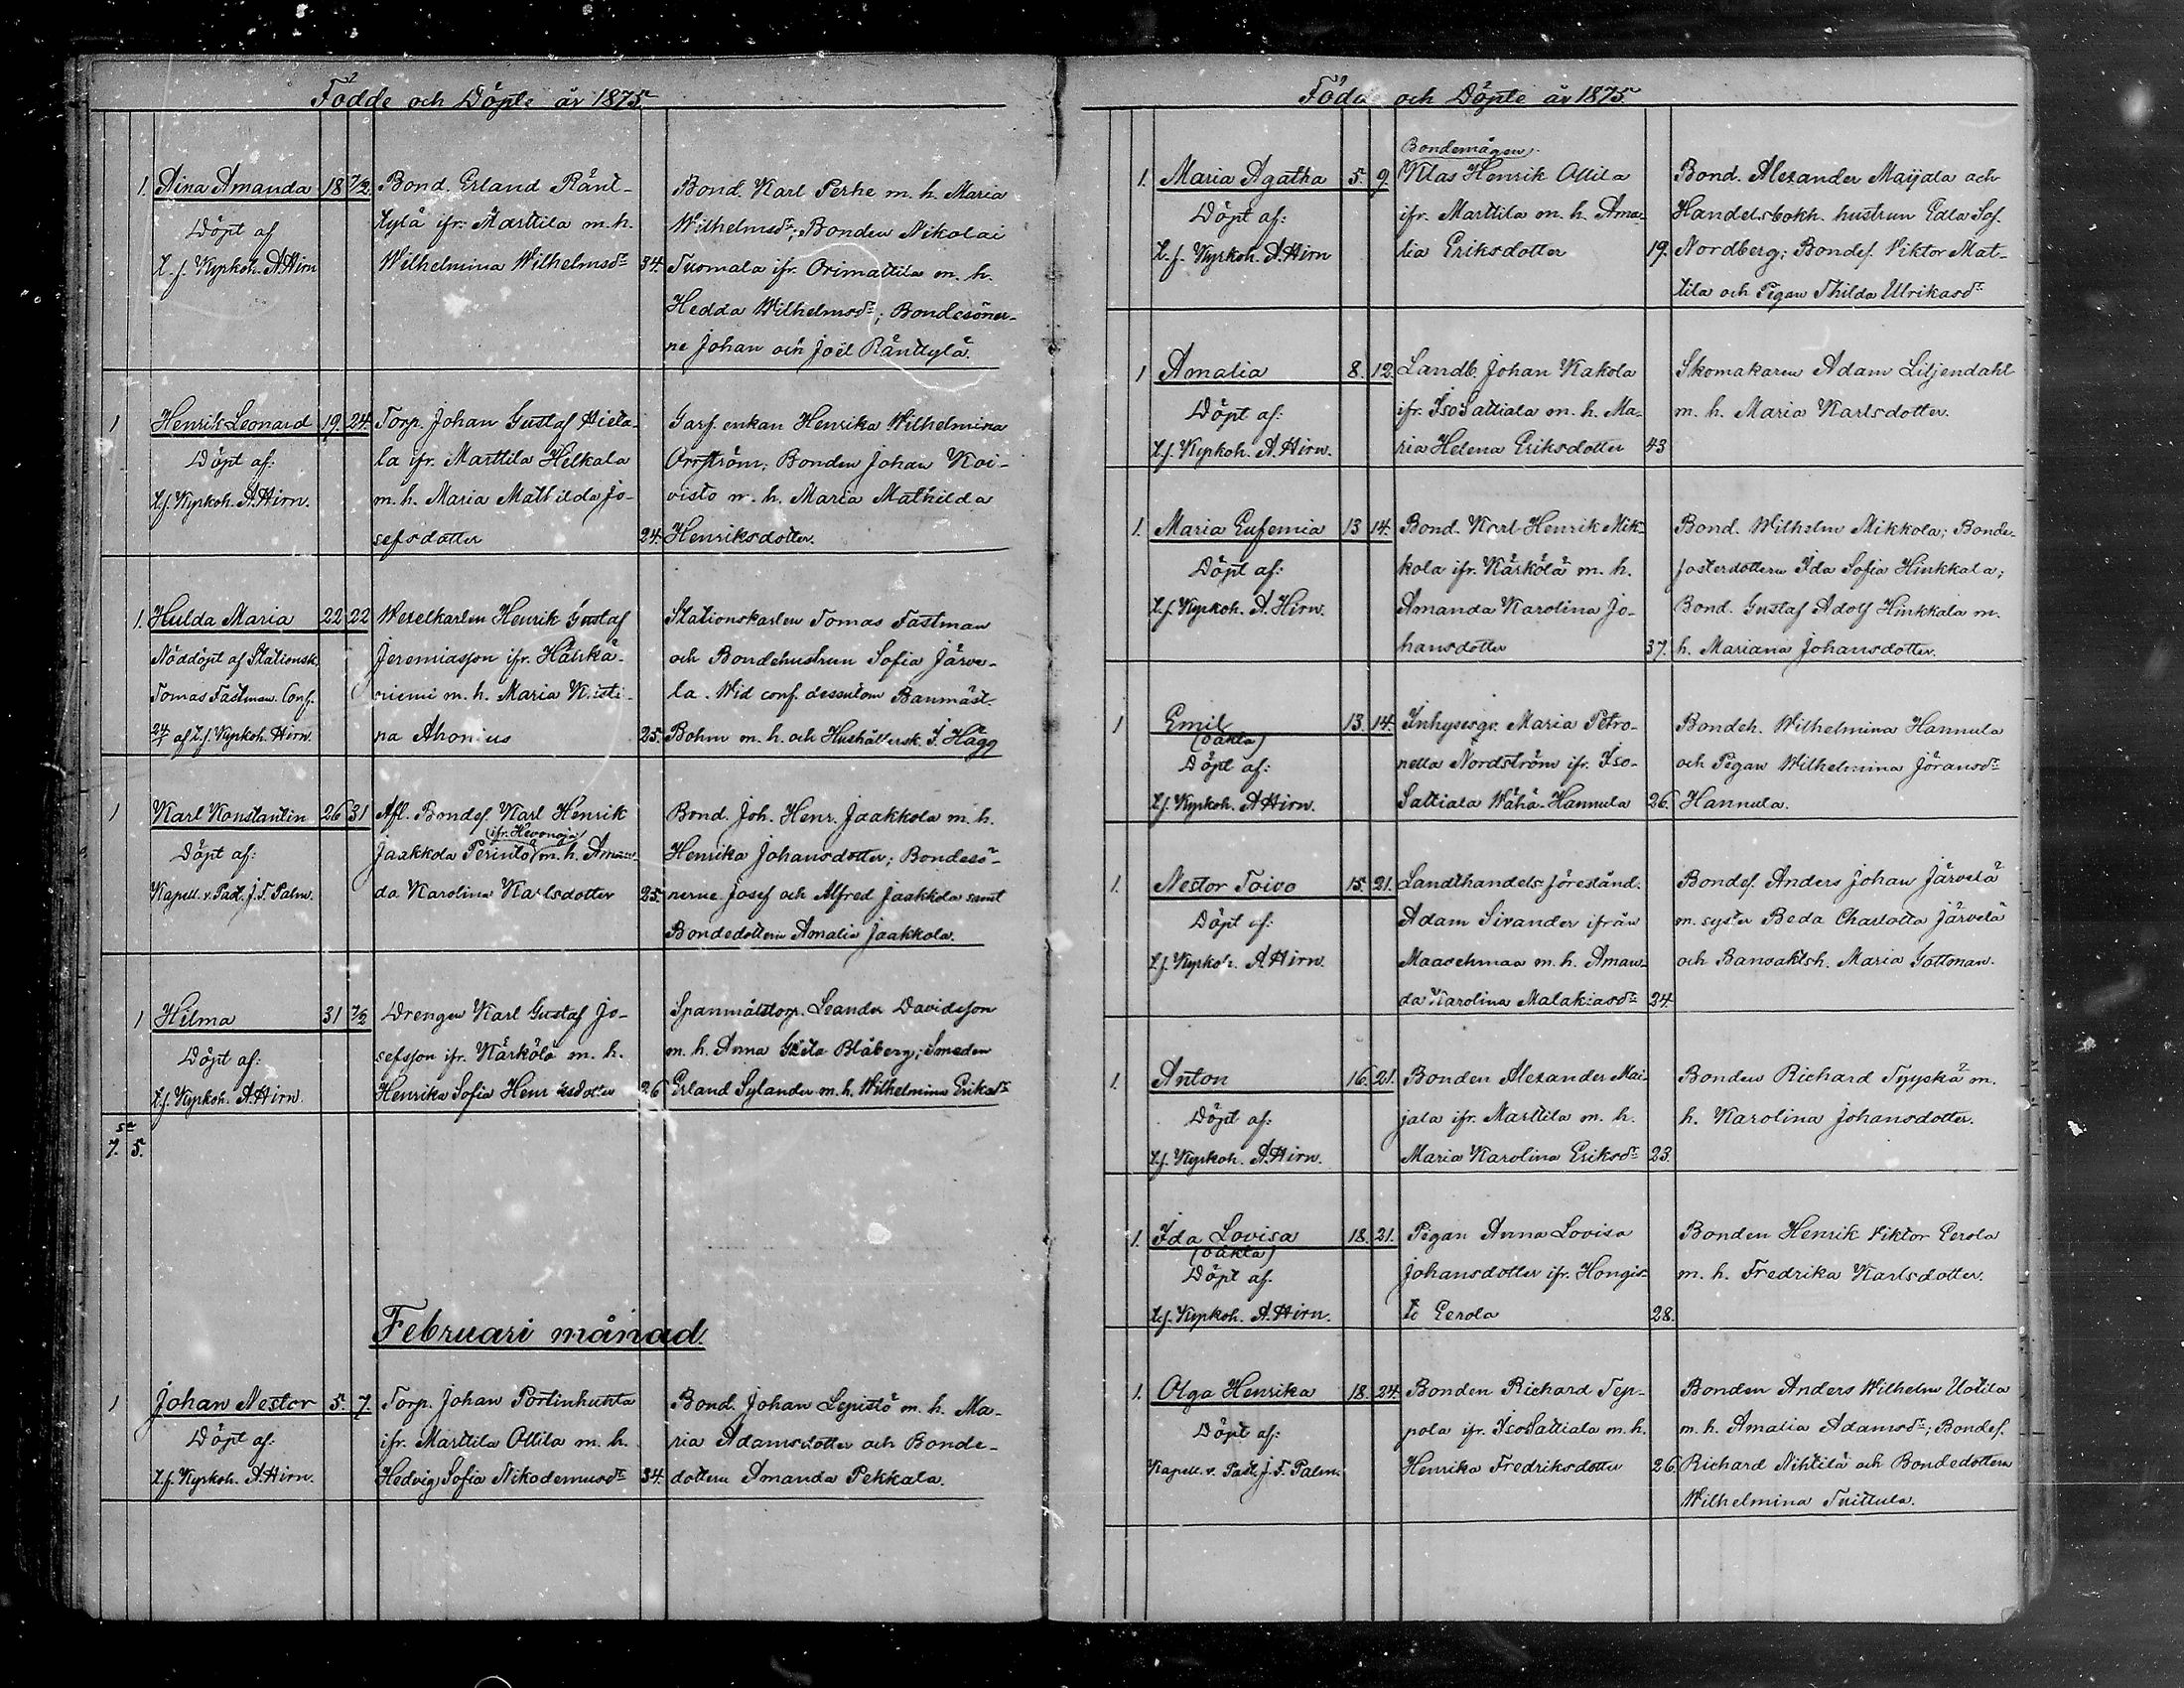 Födde och Döpte år 1875.
1. Aina Amanda 18 7/2. Bond. Erland Ränt- Bond. Karl Perhe m. h. Maria
Döpt af tylä ifr. Marttila m. h. Wilhelmsdr; Bonden Nikolai
t. f. Kyrkoh. A. Hirn Wilhelmina Wilhelmsdr 34. Tuomala ifr. Orimattila m. h.
Hedda Wilhelmsdr; Bondesöner-
ne Johan och Joël Ränttylä.
1 Henrik Leonard 19. 24. Torp. Johan Gustaf Hieta- Garf. enkan Henrika Wilhelmina
Döpt af: la ifr. Marttila Hilkala Orrström; Bonden Johan Koi-
t.f. Kyrkoh. A. Hirn. m. h. Maria Mathilda Jo- visto m. h. Maria Mathilda
sefsdotter 24. Henriksdotter.
1. Hulda Maria 22 22 Wexelkarlen Henrik Gustaf Stationskarlen Tomas Fastman
Nöddöpt af Stationsk. Jeremiasson ifr. Hähkä- och Bondehustrun Sofia Järve-
Tomas Fastman. Conf. niemi m. h. Maria Kristi- la. Wid conf. dessutom Banmäst.
24/1 af t.f. Kyrkoh. Hirn. na Ahonius 25. Bohm m. h. och Hushållersk. I. Hägg
1 Karl Konstantin 26 31 Afl. Bondes. Karl Henrik Bond. Joh. Henr. Jaakkola m. h.
(ifr. Hevonoja)
Döpt af: Jaakkola Perinto m. h. Aman- Henrika Johansdotter; Bondesö-
Kapell. v. Past. J. F. Palm. da Karolina Karlsdotter 25. nerne Josef och Alfred Jaakkola samt
Bondedottern Amalia Jaakkola.
1 Hilma 31 7/2 Drengen Karl Gustaf Jo- Spanmålstorp. Leander Davidsson
Döpt af: sefsson ifr. Kärkölä m. h. m. h. Anna Greta Blåberg; Smeden
t.f. Kyrkoh. A. Hirn. Henrika Sofia Henriksdotter 26 Erland Sylander m. h. Wilhelmina Eriksdr
sa
7. 5.
Februari månad.
1 Johan Nestor 5. 7. Torp. Johan Portinhuhta Bond. Johan Lepistö m. h. Ma-
Döpt af: ifr. Marttila Ollila m. h. ria Adamsdotter och Bonde-
t.f. Kyrkoh. A. Hirn. Hedvig Sofia Nikodemusdr 34. dottern Amanda Pekkala.
Födde och Döpte år 1875.
Bondemågen
1. Maria Agatha 5. 9. Klas Henrik Ollila Bond. Alexander Maijala och
Döpt af: ifr. Marttila m. h. Ama- Handelsbokh. hustrun Edla Sof.
t.f. Kyrkoh. A. Hirn lia Eriksdotter 19. Nordberg; Bondes. Viktor Mat-
tila och Pigan Thilda Ulrikasdr
1 Amalia 8. 12. Landb. Johan Kakola Skomakaren Adam Liljendahl
Döpt af: ifr. IsoSattiala m. h. Ma- m. h. Maria Karlsdotter.
t.f. Kyrkoh. A. Hirn. ria Helena Eriksdotter 43
1. Maria Eufemia 13 14. Bond. Karl Henrik Mik- Bond. Wilhelm Mikkola; Bonde-
Döpt af: kola ifr. Kärkölä m. h. fosterdottern Ida Sofia Hinkkala;
t.f. Kyrkoh. A. Hirn. Amanda Karolina Jo- Bond. Gustaf Adolf Hinkkala m.
hansdotter 37. h. Mariana Johansdotter.
1 Emil 13. 14. Inhysesqv. Maria Petro- Bondeh. Wilhelmina Hannula
(oäkta)
Döpt af: nella Nordström ifr. Iso- och Pigan Wilhelmina Göransdr
t.f. Kyrkoh. A. Hirn. Sattiala Wähä-Hannula 26. Hannula.
1. Nestor Toivo 15. 21. Landthandels föreständ. Bondes. Anders Johan Järvelä
Döpt af: Adam Sirander ifrån m. syster Beda Charlotta Järvelä
t.f. Kyrkoh. A. Hirn. Maavehmaa m. h. Aman- och Banvaktsh. Maria Gottman.
da Karolina Malakiasdr 24.
1. Anton 16. 21. Bonden Alexander Mai- Bonden Richard Tyyskä m.
Döpt af: jala ifr. Marttila m. h. h. Karolina Johansdotter.
t.f. Kyrkoh. A. Hirn. Maria Karolina Eriksdr 23.
1. Ida Lovisa 18. 21. Pigan Anna Lovisa Bonden Henrik Viktor Eerola
(oäkta)
Döpt af. Johansdotter ifr. Hongis- m. h. Fredrika Karlsdotter.
t.f. Kyrkoh. A. Hirn. to Eerola 28.
1. Olga Henrika 18. 24. Bonden Richard Tep- Bonden Anders Wilhelm Uotila
Döpt af: pola ifr. IsoSattiala m. h. m. h. Amalia Adamsdr; Bondes.
Kapell. v. Past. J. F. Palm. Henrika Fredriksdotter 26. Richard Nihtilä och Bondedottern
Wilhelmina Tuittula.